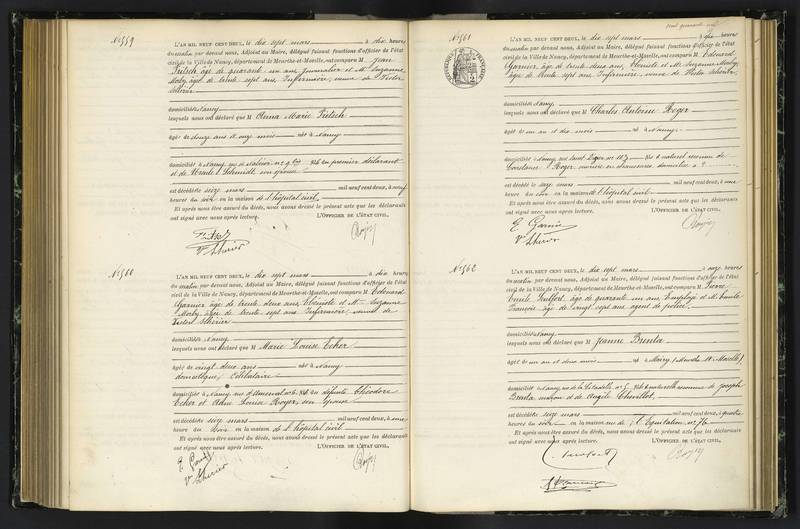 N° 559
L'AN MIL NEUF CENT DEUX, le dix sept mars à dix heures
du matin par devant nous, Adjoint au Maire, délégué faisant fonctions d'officier de l'état
civil de la Ville de Nancy, département de Meurthe-et-Moselle, ont comparu M Jean
Fritsch âgé de quarante un ans Journalier et M Suzanne
Marby, âgée de trente sept ans, Infirmière, veuve de Victor
Lhérier
domiciliés Nancy
lesquels nous ont déclaré que M Anna Marie Fritsch
âgée de douze ans et onze mois née à Nancy
domiciliée à Nancy, rue de fille du premier déclarant
et de Ursule Schmidt son épouse
est décédée seize mars mil neuf cent deux, à neuf
heures du soir en la maison de l'hôpital civil
Et après nous être assuré du décès, nous avons dressé le présent acte que les déclarants
ont signé avec nous après lecture. L'OFFICIER DE L'ÉTAT CIVIL,
Vve Lhérier
N° 560
L'AN MIL NEUF CENT DEUX, le dix sept mars à dix heures
du matin par devant nous, Adjoint au Maire, délégué faisant fonctions d'officier de l'état
civil de la Ville de Nancy, département de Meurthe-et-Moselle, ont comparu M Edouard
Garnier âgé de trente deux ans, Ebéniste et M Suzanne
Marby, âgée de trente sept ans Infirmière, veuve de
Victor Lhérier
domiciliés Nancy
lesquels nous ont déclaré que M Marie Louise Echer
âgée de vingt deux ans née à Nancy
domestique, Célibataire
domiciliée à Nancy, rue n° 6, fille du défunt Théodore
Echer et Louise Royer, son épouse
est décédée seize mars mil neuf cent deux, à une
heure du soir en la maison de l'hôpital civil
Et après nous être assuré du décès, nous avons dressé le présent acte que les déclarants
ont signé avec nous après lecture. L'OFFICIER DE L'ÉTAT CIVIL,
E Garnier
Vve Lhérier
N° 561
L'AN MIL NEUF CENT DEUX, le dix sept mars à dix heures
du matin par devant nous, Adjoint au Maire, délégué faisant fonctions d'officier de l'état
civil de la Ville de Nancy, département de Meurthe-et-Moselle, ont comparu M Edouard
Garnier, âgé de trente deux ans, Ebéniste et M Suzanne Marby,
âgée de trente sept ans Infirmière, veuve de Victor Lhérier
domiciliés Nancy
lesquels nous ont déclaré que M Charles Antoine Roger
âgé de un an et dix mois né à Nancy
domicilié à Nancy, rue Saint n° 107 fils naturel reconnu de
Constance Roger, ouvrière en chaussures domiciliée à ?
est décédé le seize mars mil neuf cent deux, à
heures du soir en la maison de l'hôpital civil
Et après nous être assuré du décès, nous avons dressé le présent acte que les déclarants
ont signé avec nous après lecture. L'OFFICIER DE L'ÉTAT CIVIL,
E Garnier
Vve Lhérier
N° 562
L'AN MIL NEUF CENT DEUX, le dix sept mars à onze heures
du matin par devant nous, Adjoint au Maire, délégué faisant fonctions d'officier de l'état
civil de la Ville de Nancy, département de Meurthe-et-Moselle, ont comparu M Pierre
Emile âgé de quarante un ans, Employé et M Emile
François âgé de vingt sept ans, agent de police
domiciliés Nancy
lesquels nous ont déclaré que M Jeanne Brenta
âgée de un an et deux mois née à (Meurthe et Moselle)
domiciliée à Nancy, rue de la Citadelle n° 5, fille naturelle reconnue de Joseph
Brenta, maçon et de Angèle
est décédée seize mars mil neuf cent deux, à quatre
heures du soir en la maison rue de l'Equitation n° 76
Et après nous être assuré du décès, nous avons dressé le présent acte que les déclarants
ont signé avec nous après lecture. L'OFFICIER DE L'ÉTAT CIVIL,